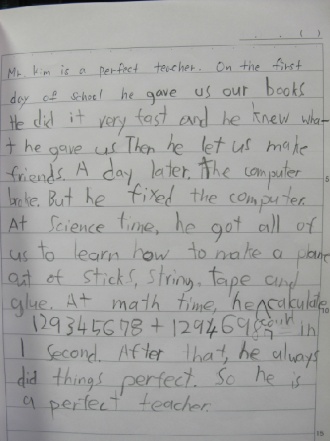 Mr. Kim is a perfect teacher. On the first
day of school he gave us our books
He did it very fast and he knew wha-
t he gave us Then he let us make
friends. A day later. The computer
broke. But he fixed the computer.
At science time, he got all of
us to learn how to make a plane
out of sticks, string, tape and
glue. At math time, he could calculate
129345678 + in
1 second. After that, he always
did things perfect. So he is
a perfect teacher.
5
10
15